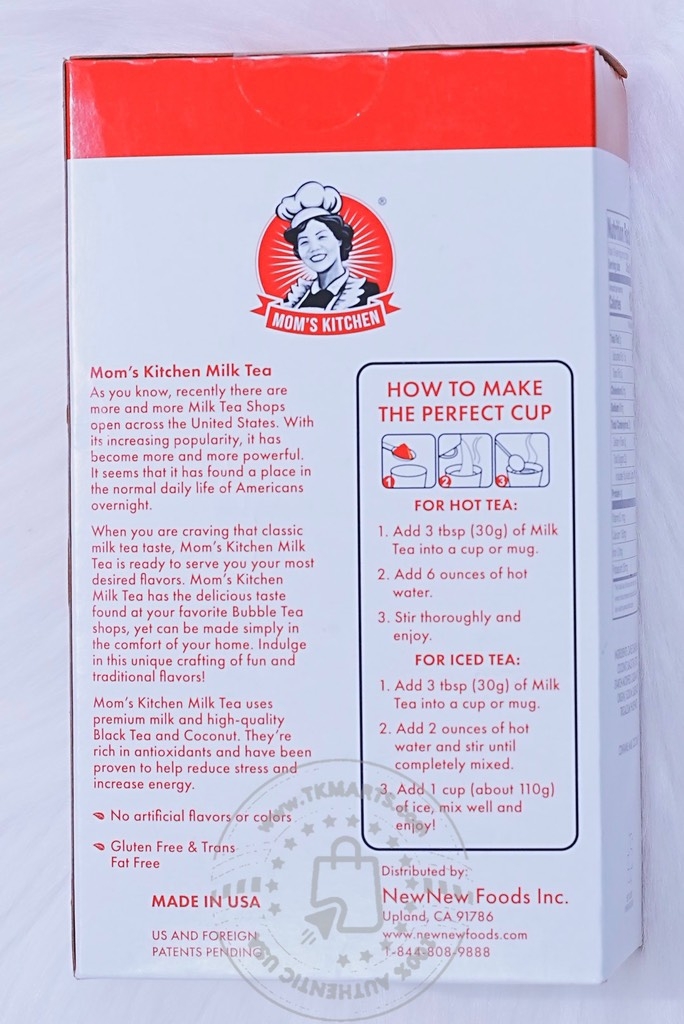 ®
MOM'S KITCHEN
Mom's Kitchen Milk Tea
As you know, recently there are
more and more Milk Tea Shops
open across the United States. With
its increasing popularity, it has
become more and more powerful.
It seems that it has found a place in
the normal daily life of Americans
overnight.
When you are craving that classic
milk tea taste, Mom's Kitchen Milk
Tea is ready to serve you your most
desired flavors. Mom's Kitchen
Milk Tea has the delicious taste
found at your favorite Bubble Tea
shops, yet can be made simply in
the comfort of your home. Indulge
in this unique crafting of fun and
traditional flavors!
Mom's Kitchen Milk Tea uses
premium milk and high-quality
Black Tea and Coconut. They're
rich in antioxidants and have been
proven to help reduce stress and
increase energy.
No artificial flavors or colors
Gluten Free & Trans
Fat Free
MADE IN USA
US AND FOREIGN
PATENTS PENDING
HOW TO MAKE
THE PERFECT CUP
1 2 3
FOR HOT TEA:
1. Add 3 tbsp (30g) of Milk
Tea into a cup or mug.
2. Add 6 ounces of hot
water.
3. Stir thoroughly and
enjoy.
FOR ICED TEA:
1. Add 3 tbsp (30g) of Milk
Tea into a cup or mug.
2. Add 2 ounces of hot
water and stir until
completely mixed.
3. Add 1 cup (about 110g)
of ice, mix well and
enjoy!
Distributed by:
NewNew Foods Inc.
Upland, CA 91786
www.newnewfoods.com
1-844-808-9888
www.TKMARTS.com
100% AUTHENTIC USA